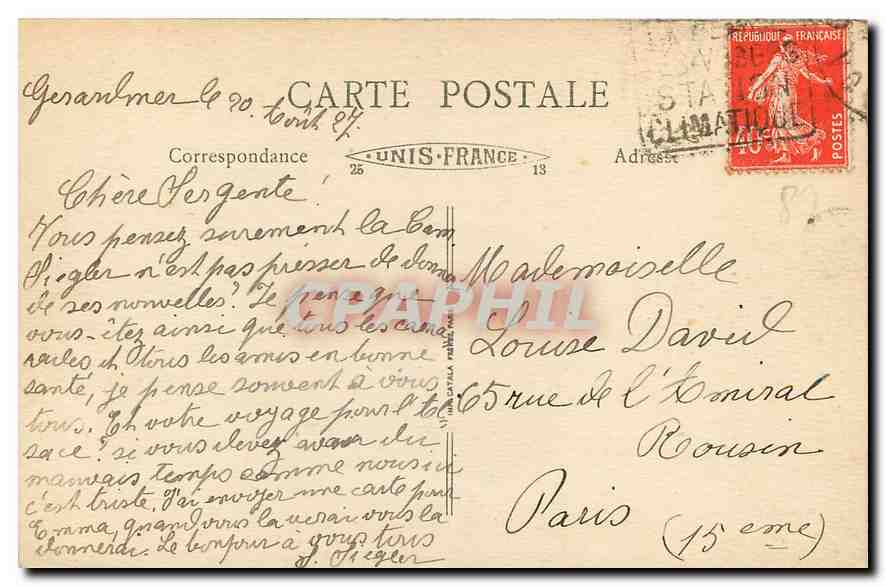 RÉPUBLIQUE FRANÇAISE
STATION
CLIMATIQUE
40c
POSTES
Gerardmer le 20. Août 27.
CARTE POSTALE
Correspondance
UNIS-FRANCE
25 13
Adresse
82
Chère Sergente!
Vous pensez surement la Cam
Siegler n'est pas presser de donner
de ses nouvelles? Je pense que
vous-êtez ainsi que tous les cama
rades et tous les amis en bonne
santé, je pense souvent à vous
tous. Et votre voyage pour l'Al
sace? si vous devez avoir du
mauvais temps comme nous ici
c'est triste. J'ai envoyer une carte pour
Emma, quand vous la verai vous la
donnerai. Le bonjour à vous tous
S. Siegler
IMP. CATALA FRÈRES, PARIS
Mademoiselle
Louise David
65 rue de l'Amiral
Rousin
Paris
(15eme)
CPAPHIL